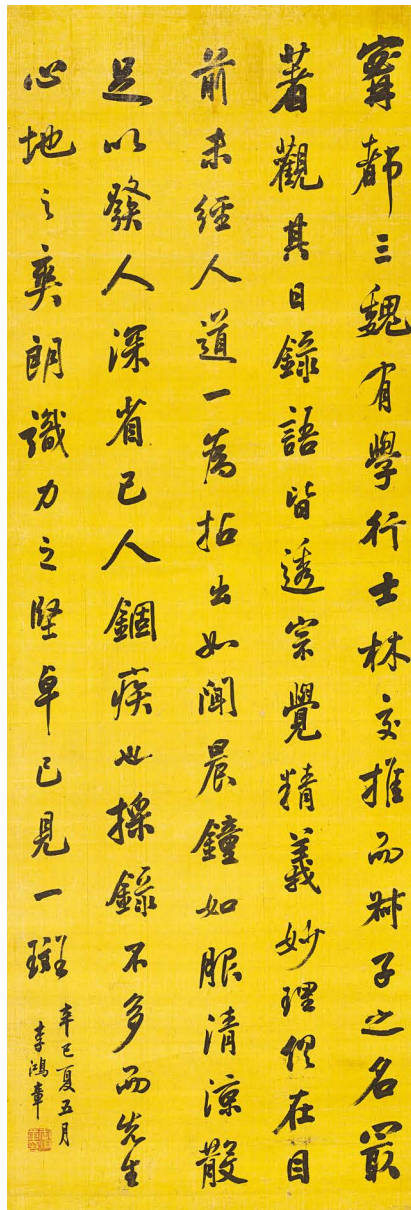 寗都三魏有學行士林交推而叔子之名最
著觀其日錄語皆透宗覺精義妙理俱在目
前未經人道一為拈出如聞晨鐘如服清涼散
足以發人深省已人錮疾也採錄不多而先生
心地之爽朗識力之堅卓已見一斑
辛巳夏五月
李鴻章